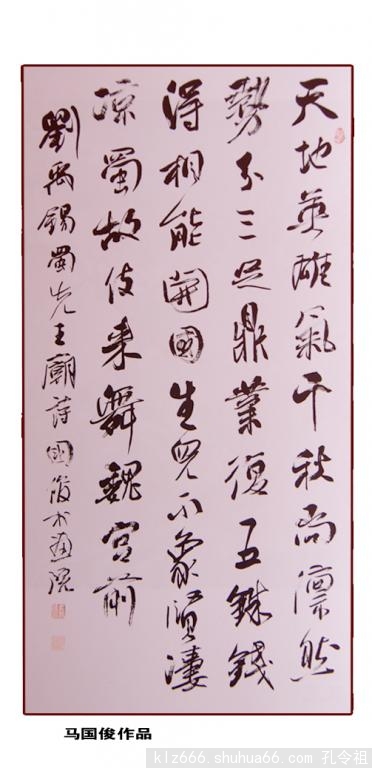 天地英雄氣千秋尚凛然
勢分三足鼎業復五銖錢
得相能開國生兒不象賢凄
凉蜀故伎来舞魏宮前
劉禹錫蜀先主廟詩國俊畫院
马国俊作品
klz666.shuhua66.com 孔令祖